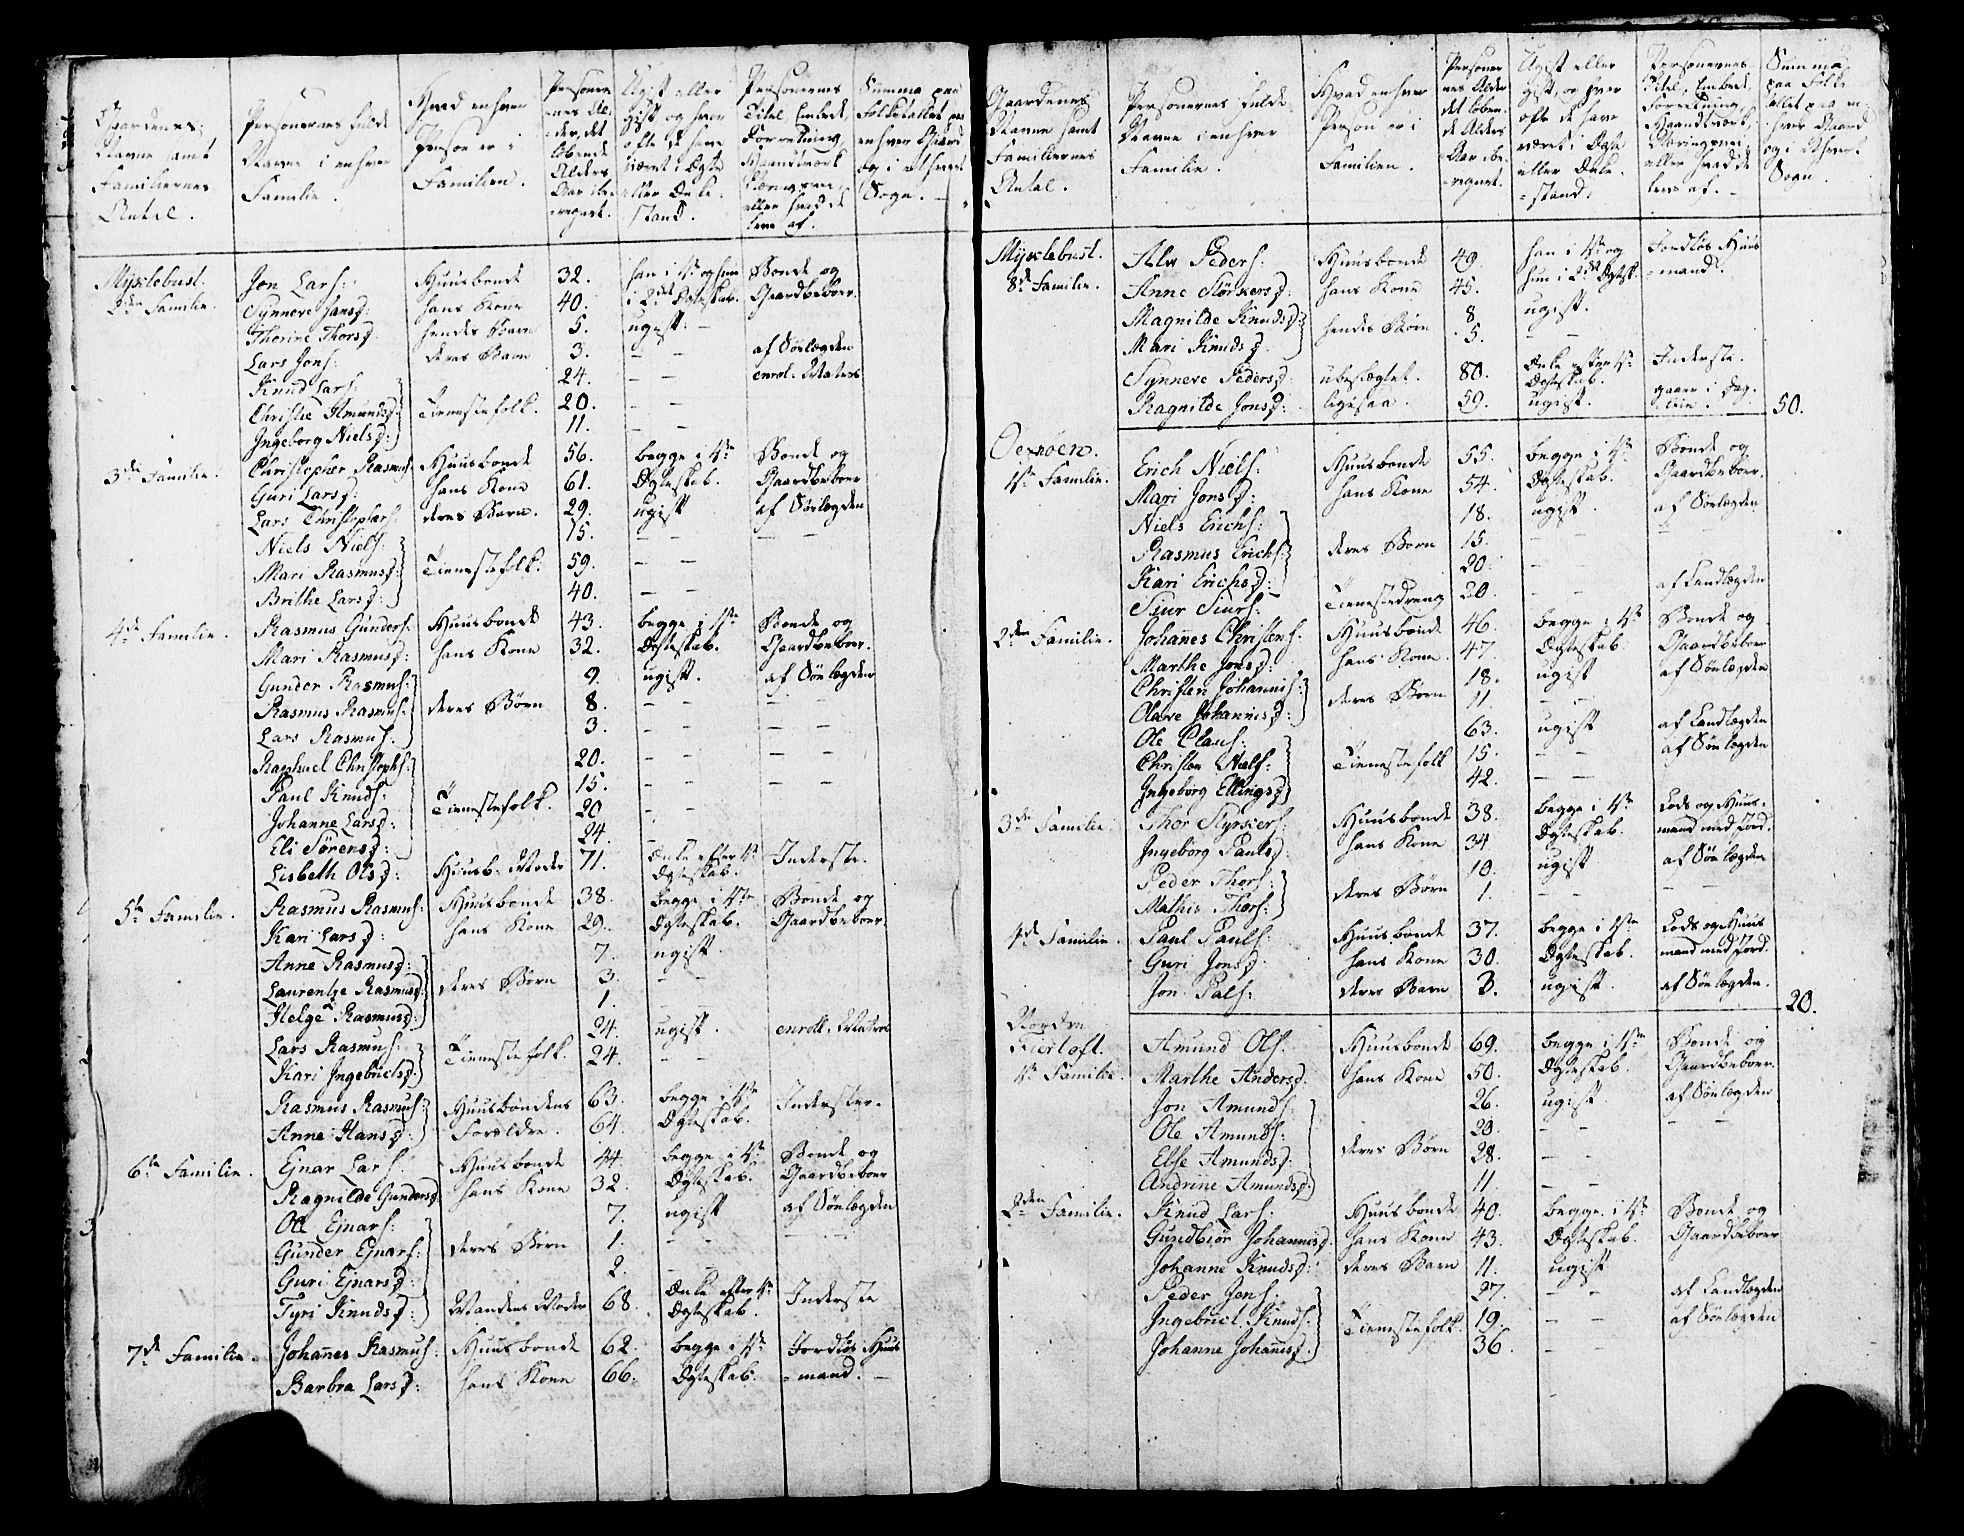 Gaardenes Navne samt Familiernes Antal.
Personernes fulde Navne i enhver Familie.
Hvad enhver Person er i Familien.
Personernes Alder, det løbende Alders Aar iberegnet.
Ugift eller Gift og hvor ofte de have været i Ægte eller Enkestand.
Personernes Titel, Embede, Forretning, Haandverk Næringsvei eller hvad de leve af.
Summa paa Folketallet paa enhver Gaard og i ethvert Sogn.
Myklebust. Jon Lars: Huusbonde 32. han i 1te og hun Bonde og
2den Familie. Synneve Jansd: hans Kone 40. i 2det Ægteskab. Gaardbeboer.
Thorine Thorsd: hendes Barn 5. ugift. –
Lars Jons: deres Barn 3. – – af Søelægden
Knud Lars: 24. – – enrol. Matros
Christie Amundsd: Tienestefolk. 20. – –
Ingeborg Nielsd: 11. – –
3de Familie. Christopher Rasmus: Huusbonde 56. begge i 1te Bonde og
Guri Larsd: hans Kone 61. Ægteskab. Gaardbeboer
Lars Christophers: deres Barn. 29. ugift af Søelægden
Niels Niels: 15. – – – –
Mari Rasmusd: Tienestefolk. 59. – –
Brithe Larsd: 40. – –
4de Familie. Rasmus Gunders: Huusbonde 43. begge i 1te Bonde og
Mari Rasmusd: hans Kone 32. Ægteskab. Gaardbeboer.
Gunder Rasmus: 9. ugift. af Søelægden
Rasmus Rasmus: deres Børn 8. – – – –
Lars Rasmus: 3. – – –
Raphael Christophs: 20. – – – –
Paul Knuds: 15. – – – –
Johanne Larsd: Tienestefolk. 20 – –
Eli Sørensd: 24. – –
Lisbeth Olsd: Huusb: Moder 71. Enke efter 1te Ægteskab. Inderste.
5te Familie. Rasmus Rasmus: Huusbonde 38. begge i 1te Bonde og
Kari Larsd: hans Kone 29. Ægteskab. Gaardbeboer.
Anne Rasmusd: 7. ugift.
Laurentze Rasmusd: deres Børn 3. – –
Helge Rasmusd: 1. – –
Lars Rasmus: 24. ugift. enroll. Matros
Kari Ingebrictsd: Tienestefolk. 24. – –
Rasmus Rasmus: Huusbondens 63. begge i 1te Inderster.
Anne Hansd: Forældre. 64. Ægteskab.
6te Familie. Ejnar Lars: Huusbonde 44 begge i 1te Bonde og
Ragnilde Gundersd: hans Kone 32. Ægteskab. Gaardbeboer
Ole Ejnars: 7. ugift af Søelægden
Gunder Ejnars: deres Børn 1. – – – –
Guri Ejnarsd: 2. – –
Tyri Knudsd: Mandens Moder 68. Enke efter 1te Ægteskab. Inderste
7de Familie. Johannes Rasmus: Huusbonde 62. begge i 1te Jordløs Huus
Barbra Larsd: hans Kone 66. Ægteskab. -mand. –
Gaardenes Navne samt Familiernes Antal.
Personernes fulde Navne i enhver Familie.
Hvad enhver Person er i Familien.
Personernes Alder det løbende Alders Aar iberegnet.
Ugift eller Gift, og hvor ofte de have været i Ægte eller Enkestand.
Personernes Titel, Embede, Forretning, Haandverk, Næringsvei, eller hvad de leve af. –
Summa paa Folketallet paa enhver Gaard og i ethvert Sogn.
Myklebust. Peders: Huusbonde 49. han i 1te og Jordløs Huus
8de Familie. Anne Størkersd: hans Kone 45. hun i 2det Ægtesk. -mand.
Magnilde Knudsd: hendes Børn 8. ugift.
Mari Knudsd: 5. – –
Synneve Pedersd: ubeslægtet. 80. Enke efter 1te Ægteskab. Inderste.
Ragnilde Jonsd: ligesaa 59. ugift. gaaer i Dag- 50.
Oexnøen. Erich Niels: Huusbonde 55. begge i 1te Bonde og
1te Familie. Mari Jonsd: hans Kone 54. Ægteskab. Gaardbeboer.
Niels Erichs: 18. ugift af Søelægden
Rasmus Erichs: deres Børn 15. – – –
Kari Erichsd: 20. – –
Siur Siurs: Tienestedreng 20. – – af Landlægden
2den Familie. Johannes Christens: Huusbonde 46. begge i 1te Bonde og
Marthe Jonsd: hans Kone. 47. Ægteskab. Gaardbeboer
Christen Johannis: deres Børn 18. ugift af Søelægden
Olave Johannisd: 11. – –
Ole Claus: 63. ugift af Landlægden
Christen Niels: Tienestefolk 15. – af Søelægden
Ingeborg Ellingsd: 42. – –
3de Familie. Thor Styrkers: Huusbonde 38. begge i 1te Lods og Huus-
Ingeborg Paulsd: hans Kone 34. Ægteskab. mand med Jord.
Peder Thors: 10. ugift af Søelægden
Mathis Thors: deres Børn 1. – – – –
4de Familie. Paul Pauls: Huusbonde 37. begge i 1te Lods og Huus
Guri Jonsd: hans Kone 30. Ægteskab. mand med Jord.
Jon Pals: deres Barn 3. ugift. af Søelægden. 20.
Nordre
Amund Ols: Huusbonde 69. begge i 1te Bonde og
1te Familie. Marthe Andersd: hans Kone 50. Ægteskab. Gaardbeboer.
Jon Amunds: 26. ugift. af Søelægden
Ole Amunds: 20. – – – –
Else Amundsd: deres Børn 28. – –
Andrine Amundsd: 11. – –
2den Familie. Knud Lars: Huusbonde 40. begge i 1te Bonde og
Gundbiør Johannisd: hans Kone 43. Ægteskab. Gaardbeboer
Johanne Knudsd: deres Barn 11. ugift
Peder Jons: 27. – – af Landlægden
Ingebrict Knuds: Tienestefolk. 19. – – af Søelægden
Johanne Johannisd: 36. –